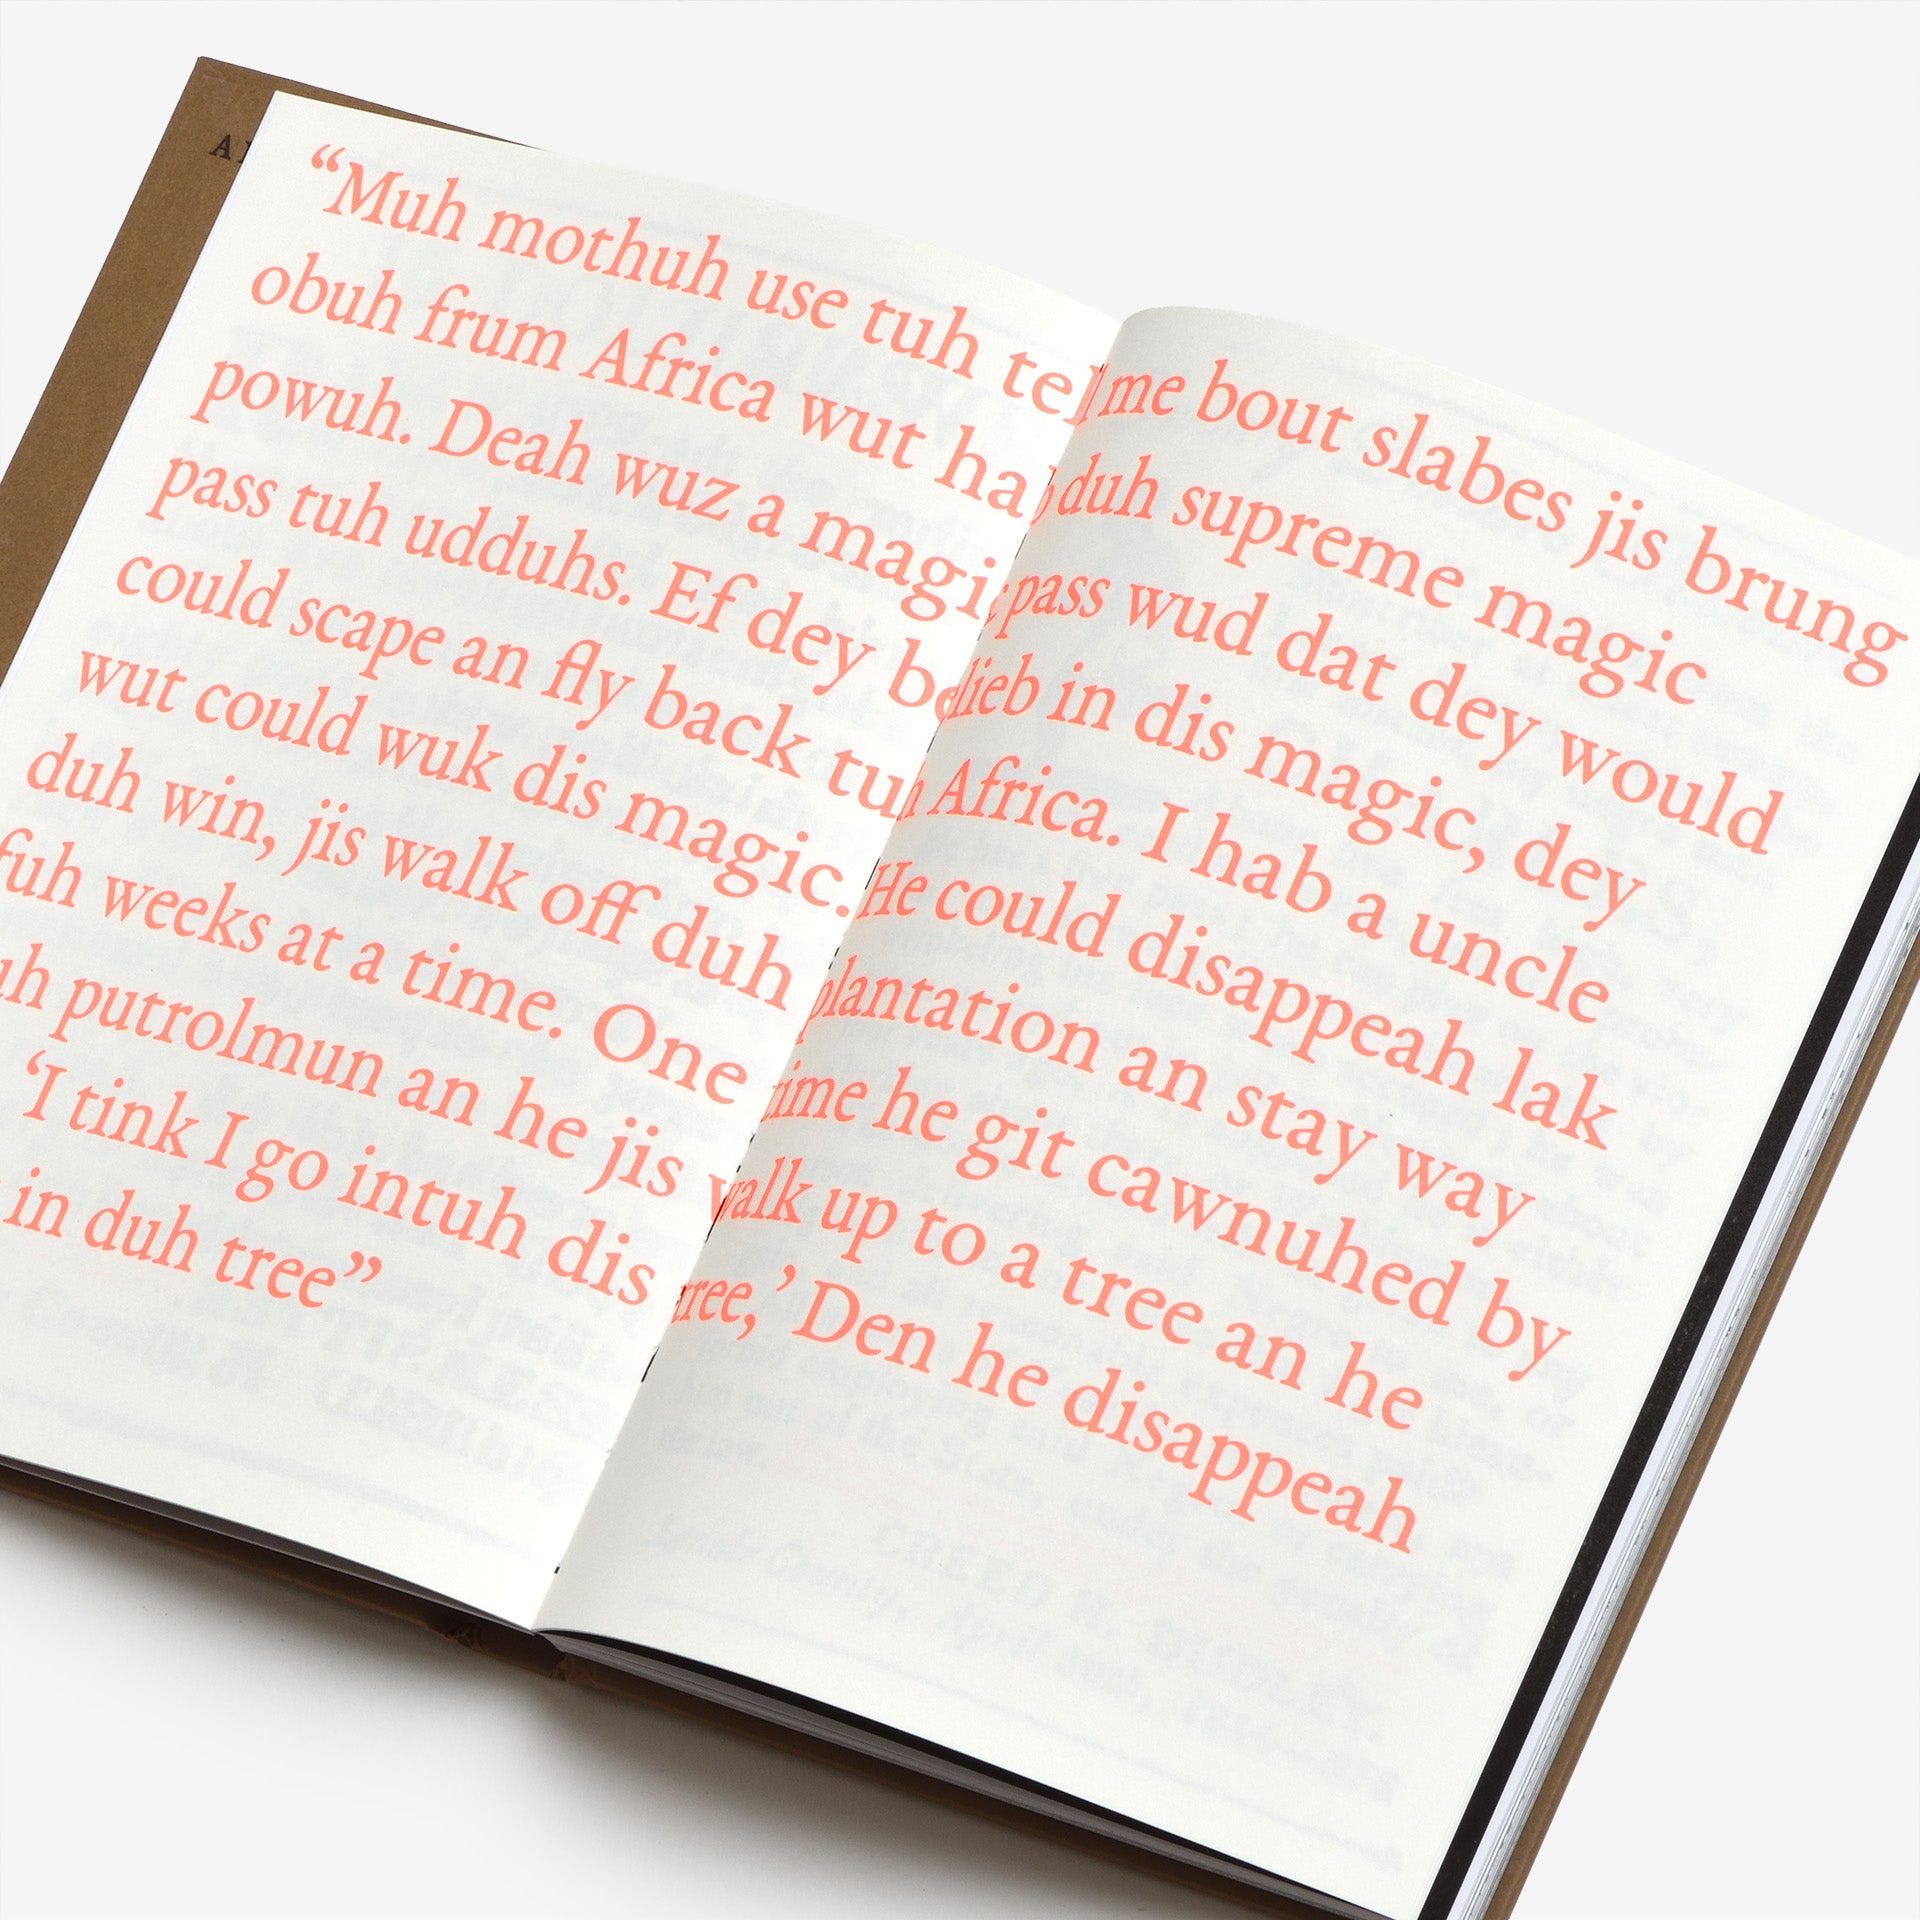 “Muh mothuh use tuh tell me bout slabes jis brung
obuh frum Africa wut hab duh supreme magic
powuh. Deah wuz a magic pass wud dat dey would
pass tuh udduhs. Ef dey belieb in dis magic, dey
could scape an fly back tuh Africa. I hab a uncle
wut could wuk dis magic. He could disappeah lak
duh win, jis walk off duh plantation an stay way
fuh weeks at a time. One time he git cawnuhed by
putrolmun an he jis walk up to a tree an he
‘I tink I go intuh dis tree,’ Den he disappeah
in duh tree”